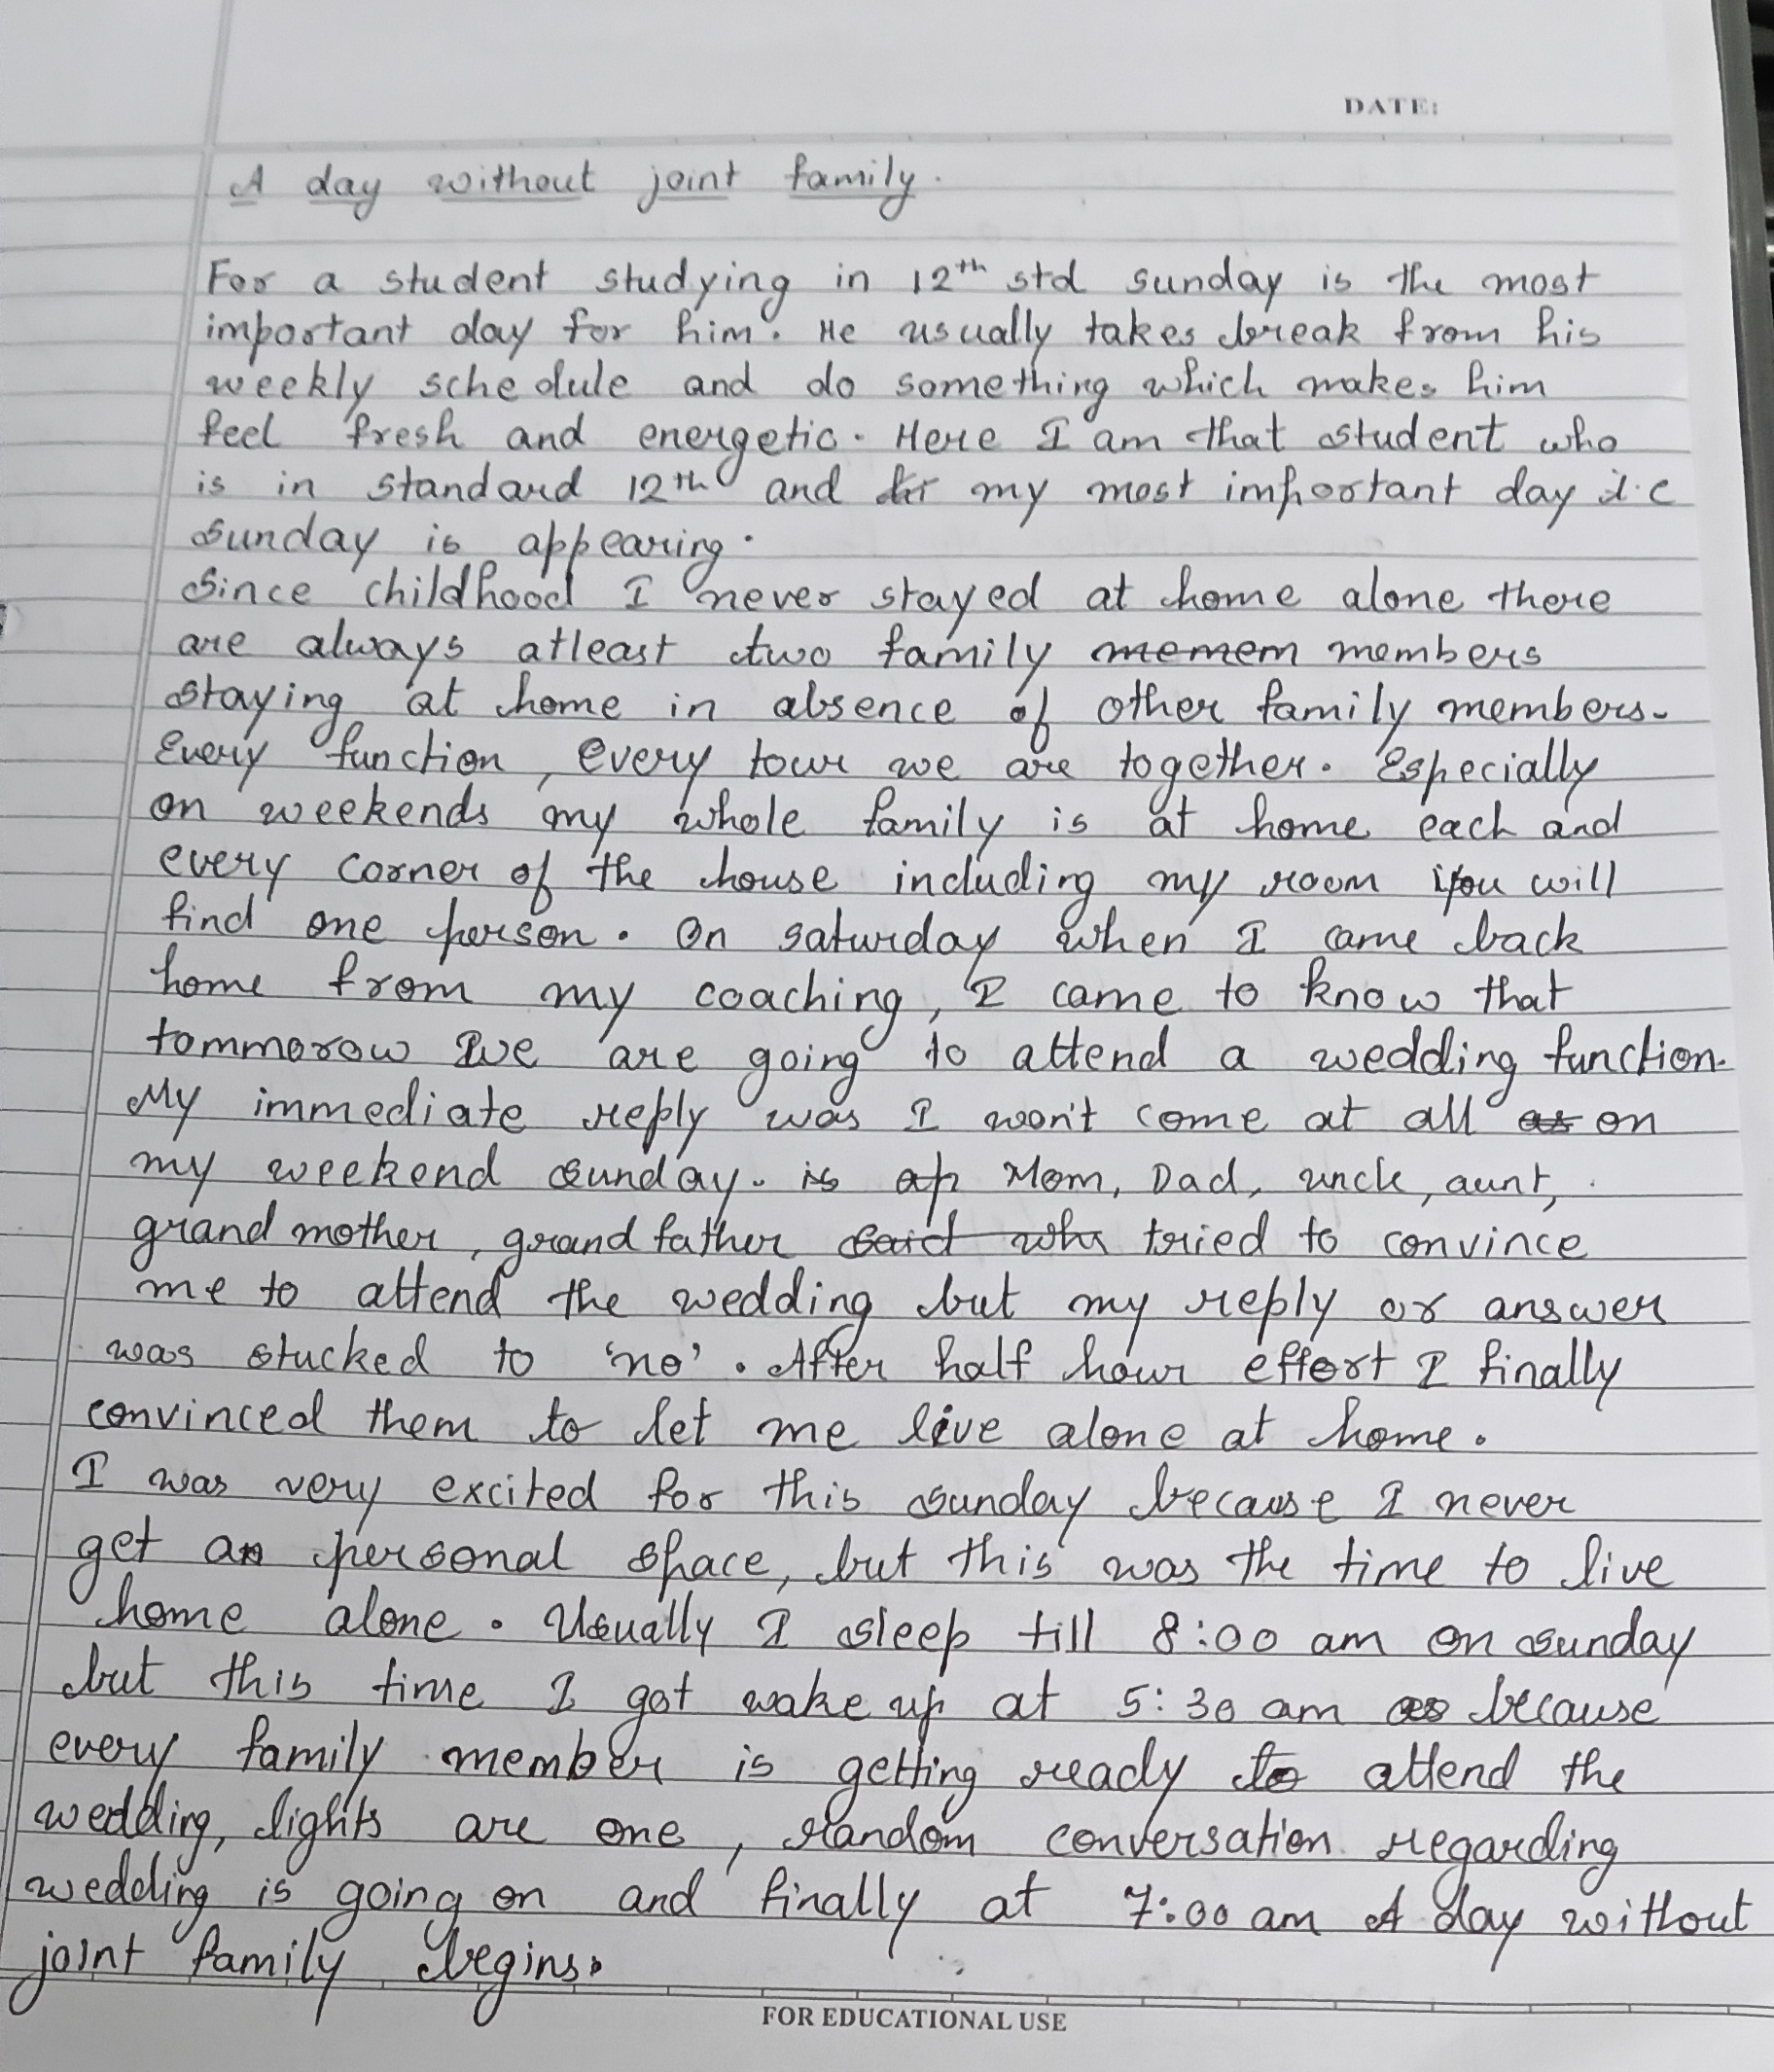 DATE:
A day without joint family.
For a student studying in 12th std sunday is the most
important day for him. He usually takes break from his
weekly schedule and do something which makes him
feel fresh and energetic. Here I am that student who
is in standard 12th and my most important day i.e
Sunday is appearing.
Since childhood I never stayed at home alone there
are always atleast two family memem members
staying at home in absence of other family members.
Every function, every tour we are together. Especially
on weekends my whole family is at home each and
every corner of the house including my room you will
find one person. On saturday when I came back
home from my coaching, I came to know that
tommorow we are going to attend a wedding function.
My immediate reply was I won't come at all as on
my weekend sunday. is ap Mom, Dad, uncle, aunt,
grand mother, grand father said who tried to convince
me to attend the wedding but my reply or answer
was stucked to 'no'. After half hour effort I finally
convinced them to let me live alone at home.
I was very excited for this sunday because I never
get a personal space, but this was the time to live
home alone. Usually I sleep till 8:00 am on sunday
but this time I got wake up at 5:30 am as because
every family member is getting ready to attend the
wedding, lights are one, random conversation regarding
wedding is going on and finally at 7:00 am A day without
joint family begins.
FOR EDUCATIONAL USE